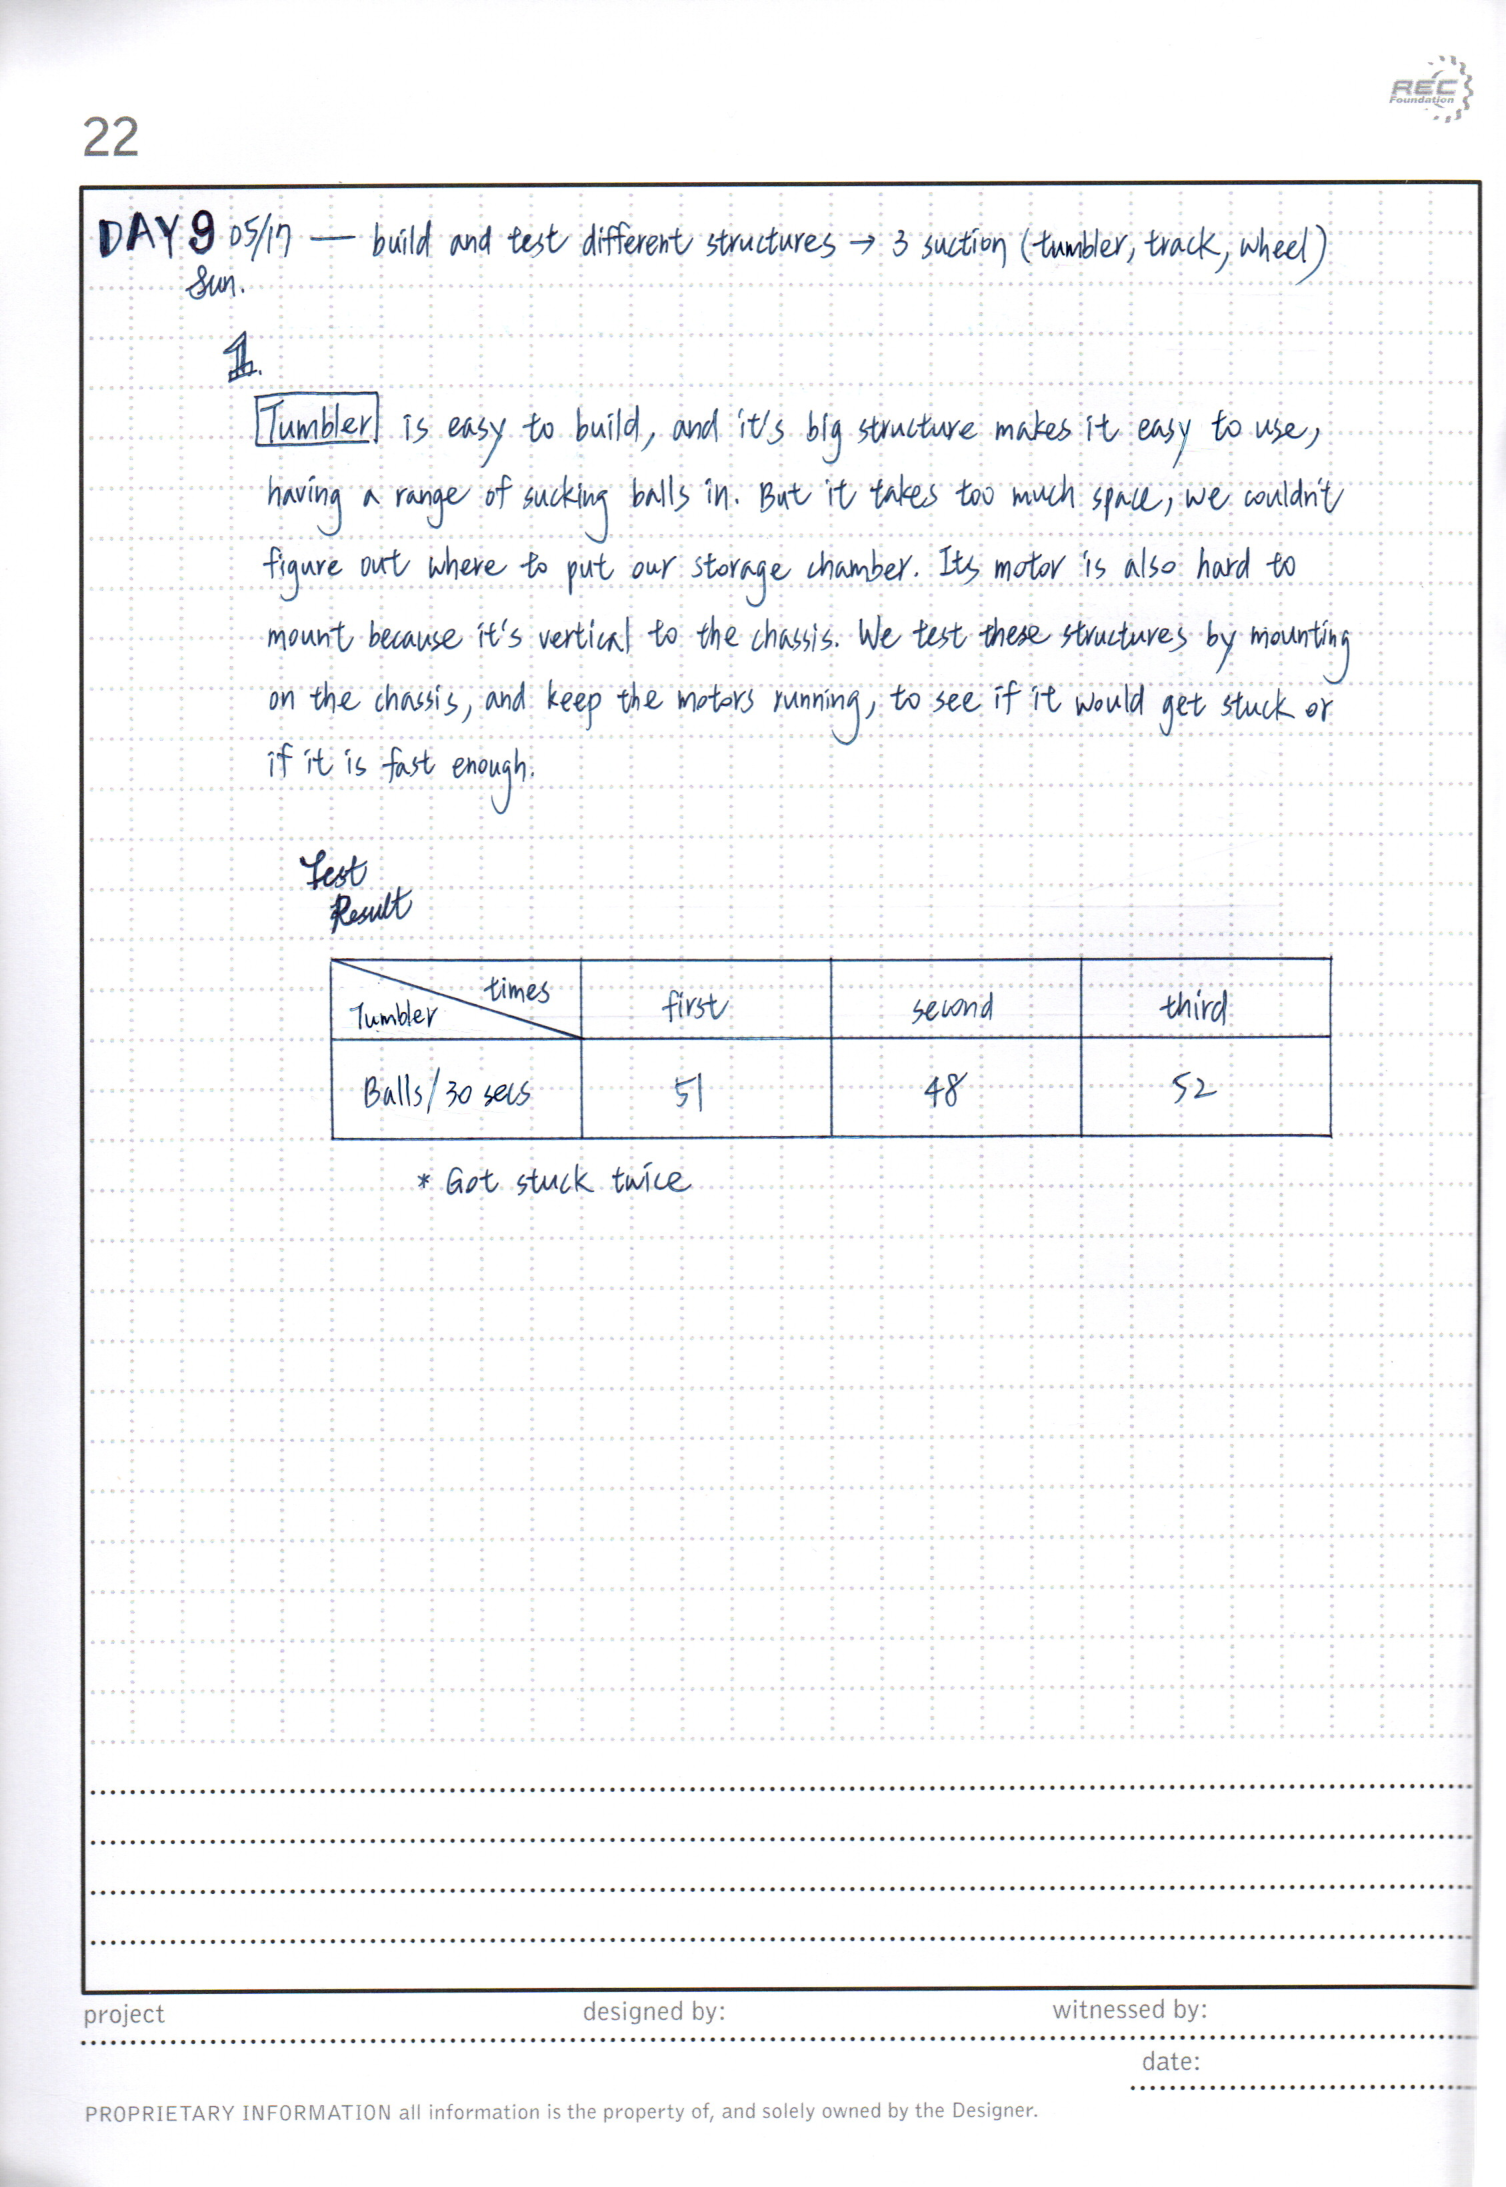 REC
Foundation
22
DAY 9 05/17 — build and test different structures → 3 suction (tumbler, track, wheel)
Sun.
1.
Tumbler is easy to build, and it's big structure makes it easy to use,
having a range of sucking balls in. But it takes too much space, we couldn't
figure out where to put our storage chamber. Its motor is also hard to
mount because it's vertical to the chassis. We test these structures by mounting
on the chassis, and keep the motors running, to see if it would get stuck or
if it is fast enough.
Test
Result
times
Tumbler
first second third
Balls/30 secs 51 48 52
* Got stuck twice
project designed by: witnessed by:
date:
PROPRIETARY INFORMATION all information is the property of, and solely owned by the Designer.